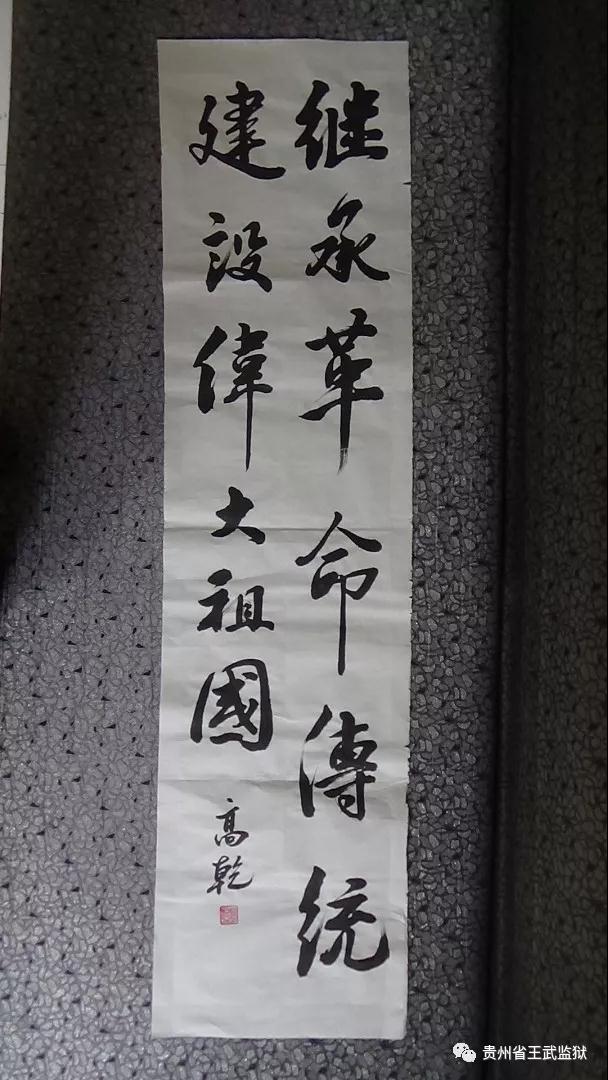 继承革命傳统
建設偉大祖國
高乾
贵州省王武监狱